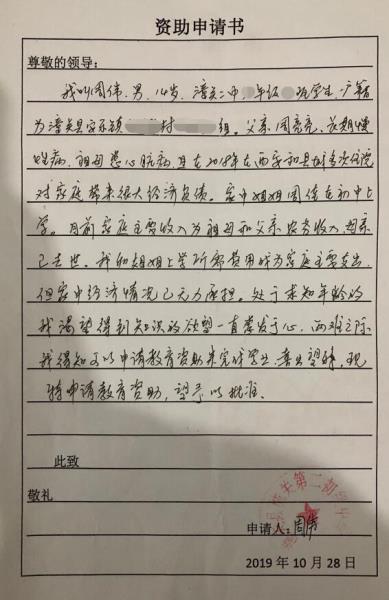 资助申请书
尊敬的领导：
我叫周伟，男，14岁，潼关二中 年级 班学生，户籍
为潼关县 镇 村 组。父亲周亮亮，长期慢
性病，祖母患心脏病，且在2018年在西安和县城多次住院
对家庭带来很大经济负债。家中姐姐周倩在初中上
学。目前家庭主要收入为祖母和父亲农务收入，母亲
已去世，我和姐姐上学所需费用成为家庭主要支出，
但家中经济情况已无力承担。处于求知年龄的
我渴望得到知识的欲望一直萦发于心，两难之际
我得知可以申请教育资助来完成学业，喜出望外，现
特申请教育资助，望予以批准。
此致
敬礼
申请人：周伟
2019 年 10 月 28 日